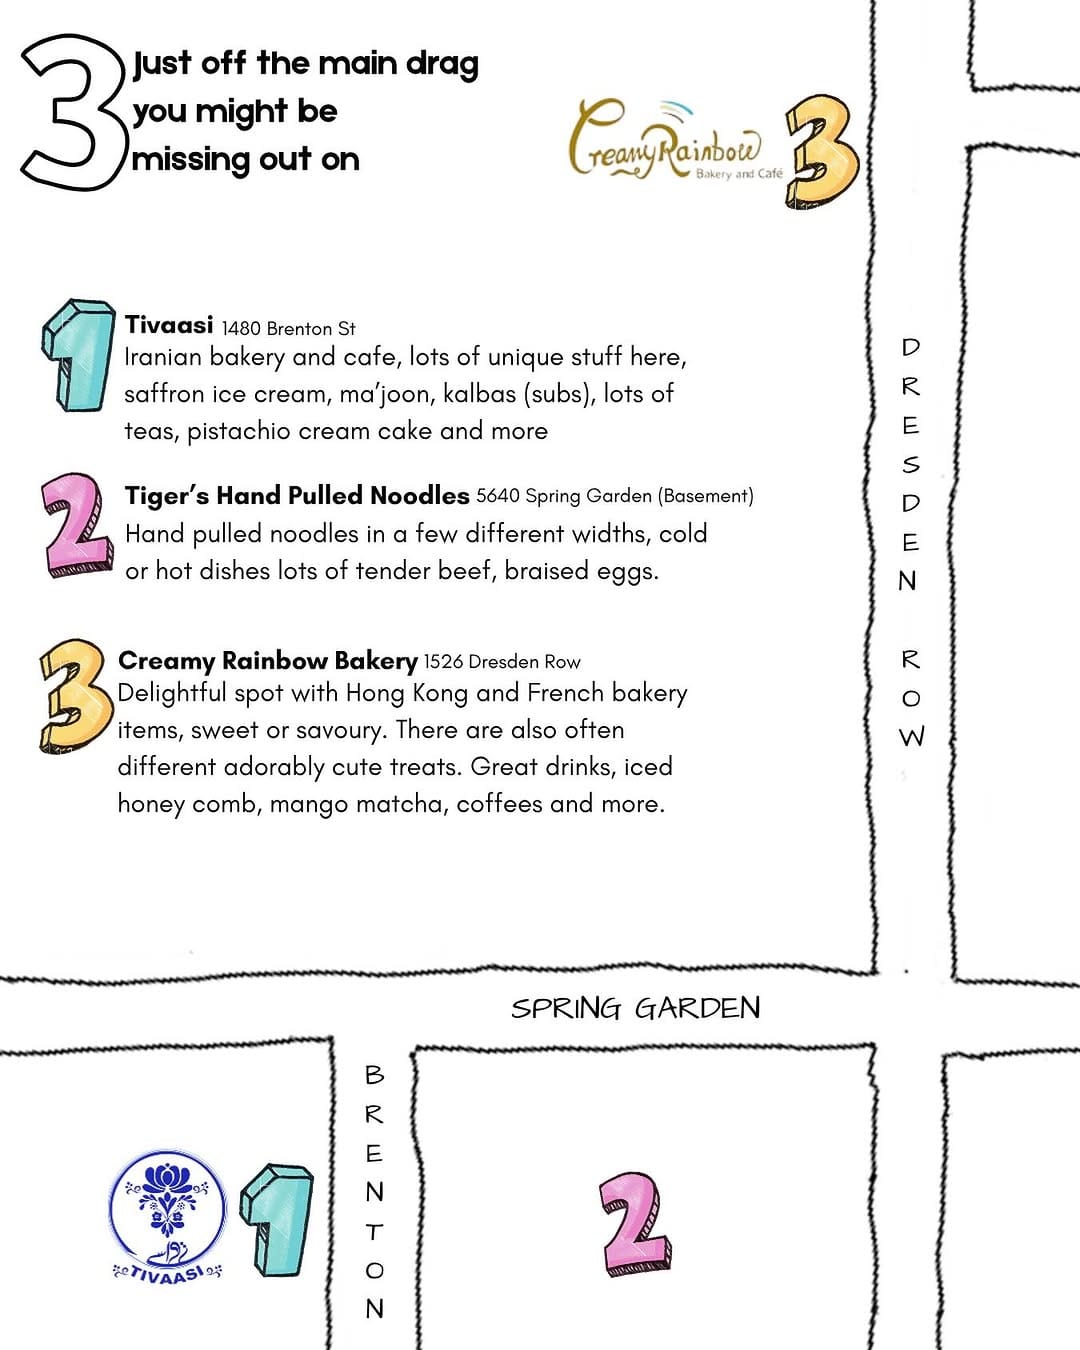 3
Just off the main drag
you might be
missing out on
CreamyRainbow
Bakery and Café
3
1
Tivaasi 1480 Brenton St
Iranian bakery and cafe, lots of unique stuff here,
saffron ice cream, ma’joon, kalbas (subs), lots of
teas, pistachio cream cake and more
2
Tiger’s Hand Pulled Noodles 5640 Spring Garden (Basement)
Hand pulled noodles in a few different widths, cold
or hot dishes lots of tender beef, braised eggs.
3
Creamy Rainbow Bakery 1526 Dresden Row
Delightful spot with Hong Kong and French bakery
items, sweet or savoury. There are also often
different adorably cute treats. Great drinks, iced
honey comb, mango matcha, coffees and more.
DRESDEN ROW
SPRING GARDEN
BRENTON
TIVAASI
1
2